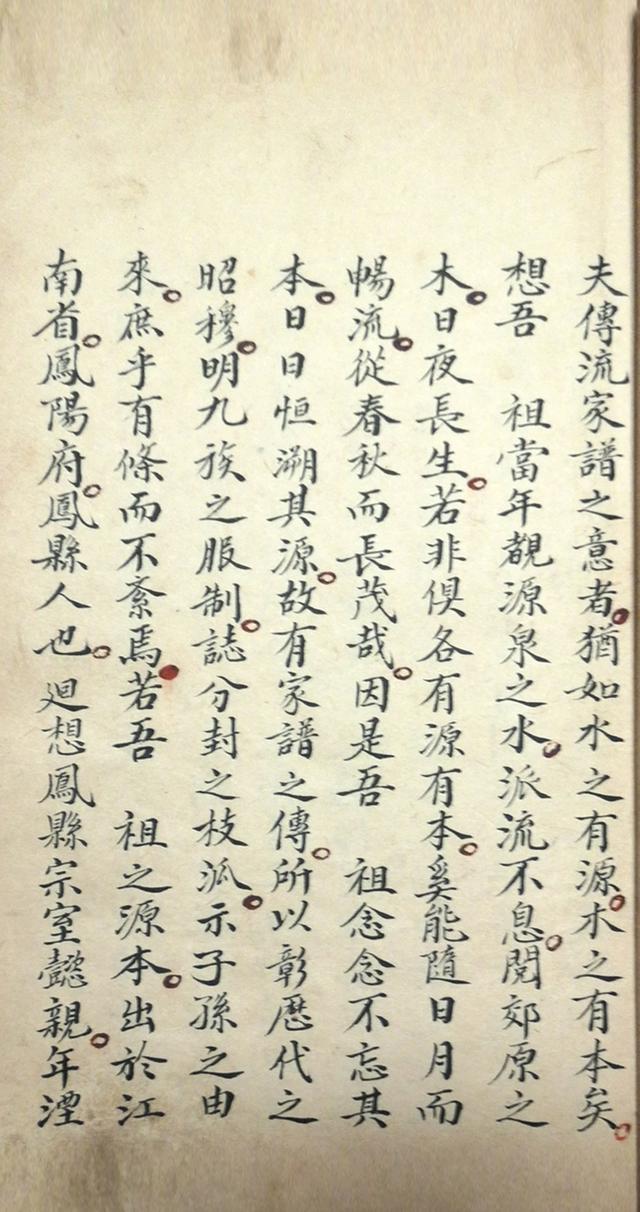 夫傳流家譜之意者。猶如水之有源。木之有本矣。
想吾　祖當年覩源泉之水。派流不息。閱郊原之
木。日夜長生。若非俱各有源有本。奚能隨日月而
暢流。從春秋而長茂哉。因是吾　祖念念不忘其
本。日日恒溯其源。故有家譜之傳。所以彰歷代之
昭穆。明九族之服制。誌分封之枝派。示子孫之由
來。庶乎有條而不紊焉。若吾　祖之源本。出於江
南省。鳳陽府。鳳縣人也。廻想鳳縣宗室懿親。年湮